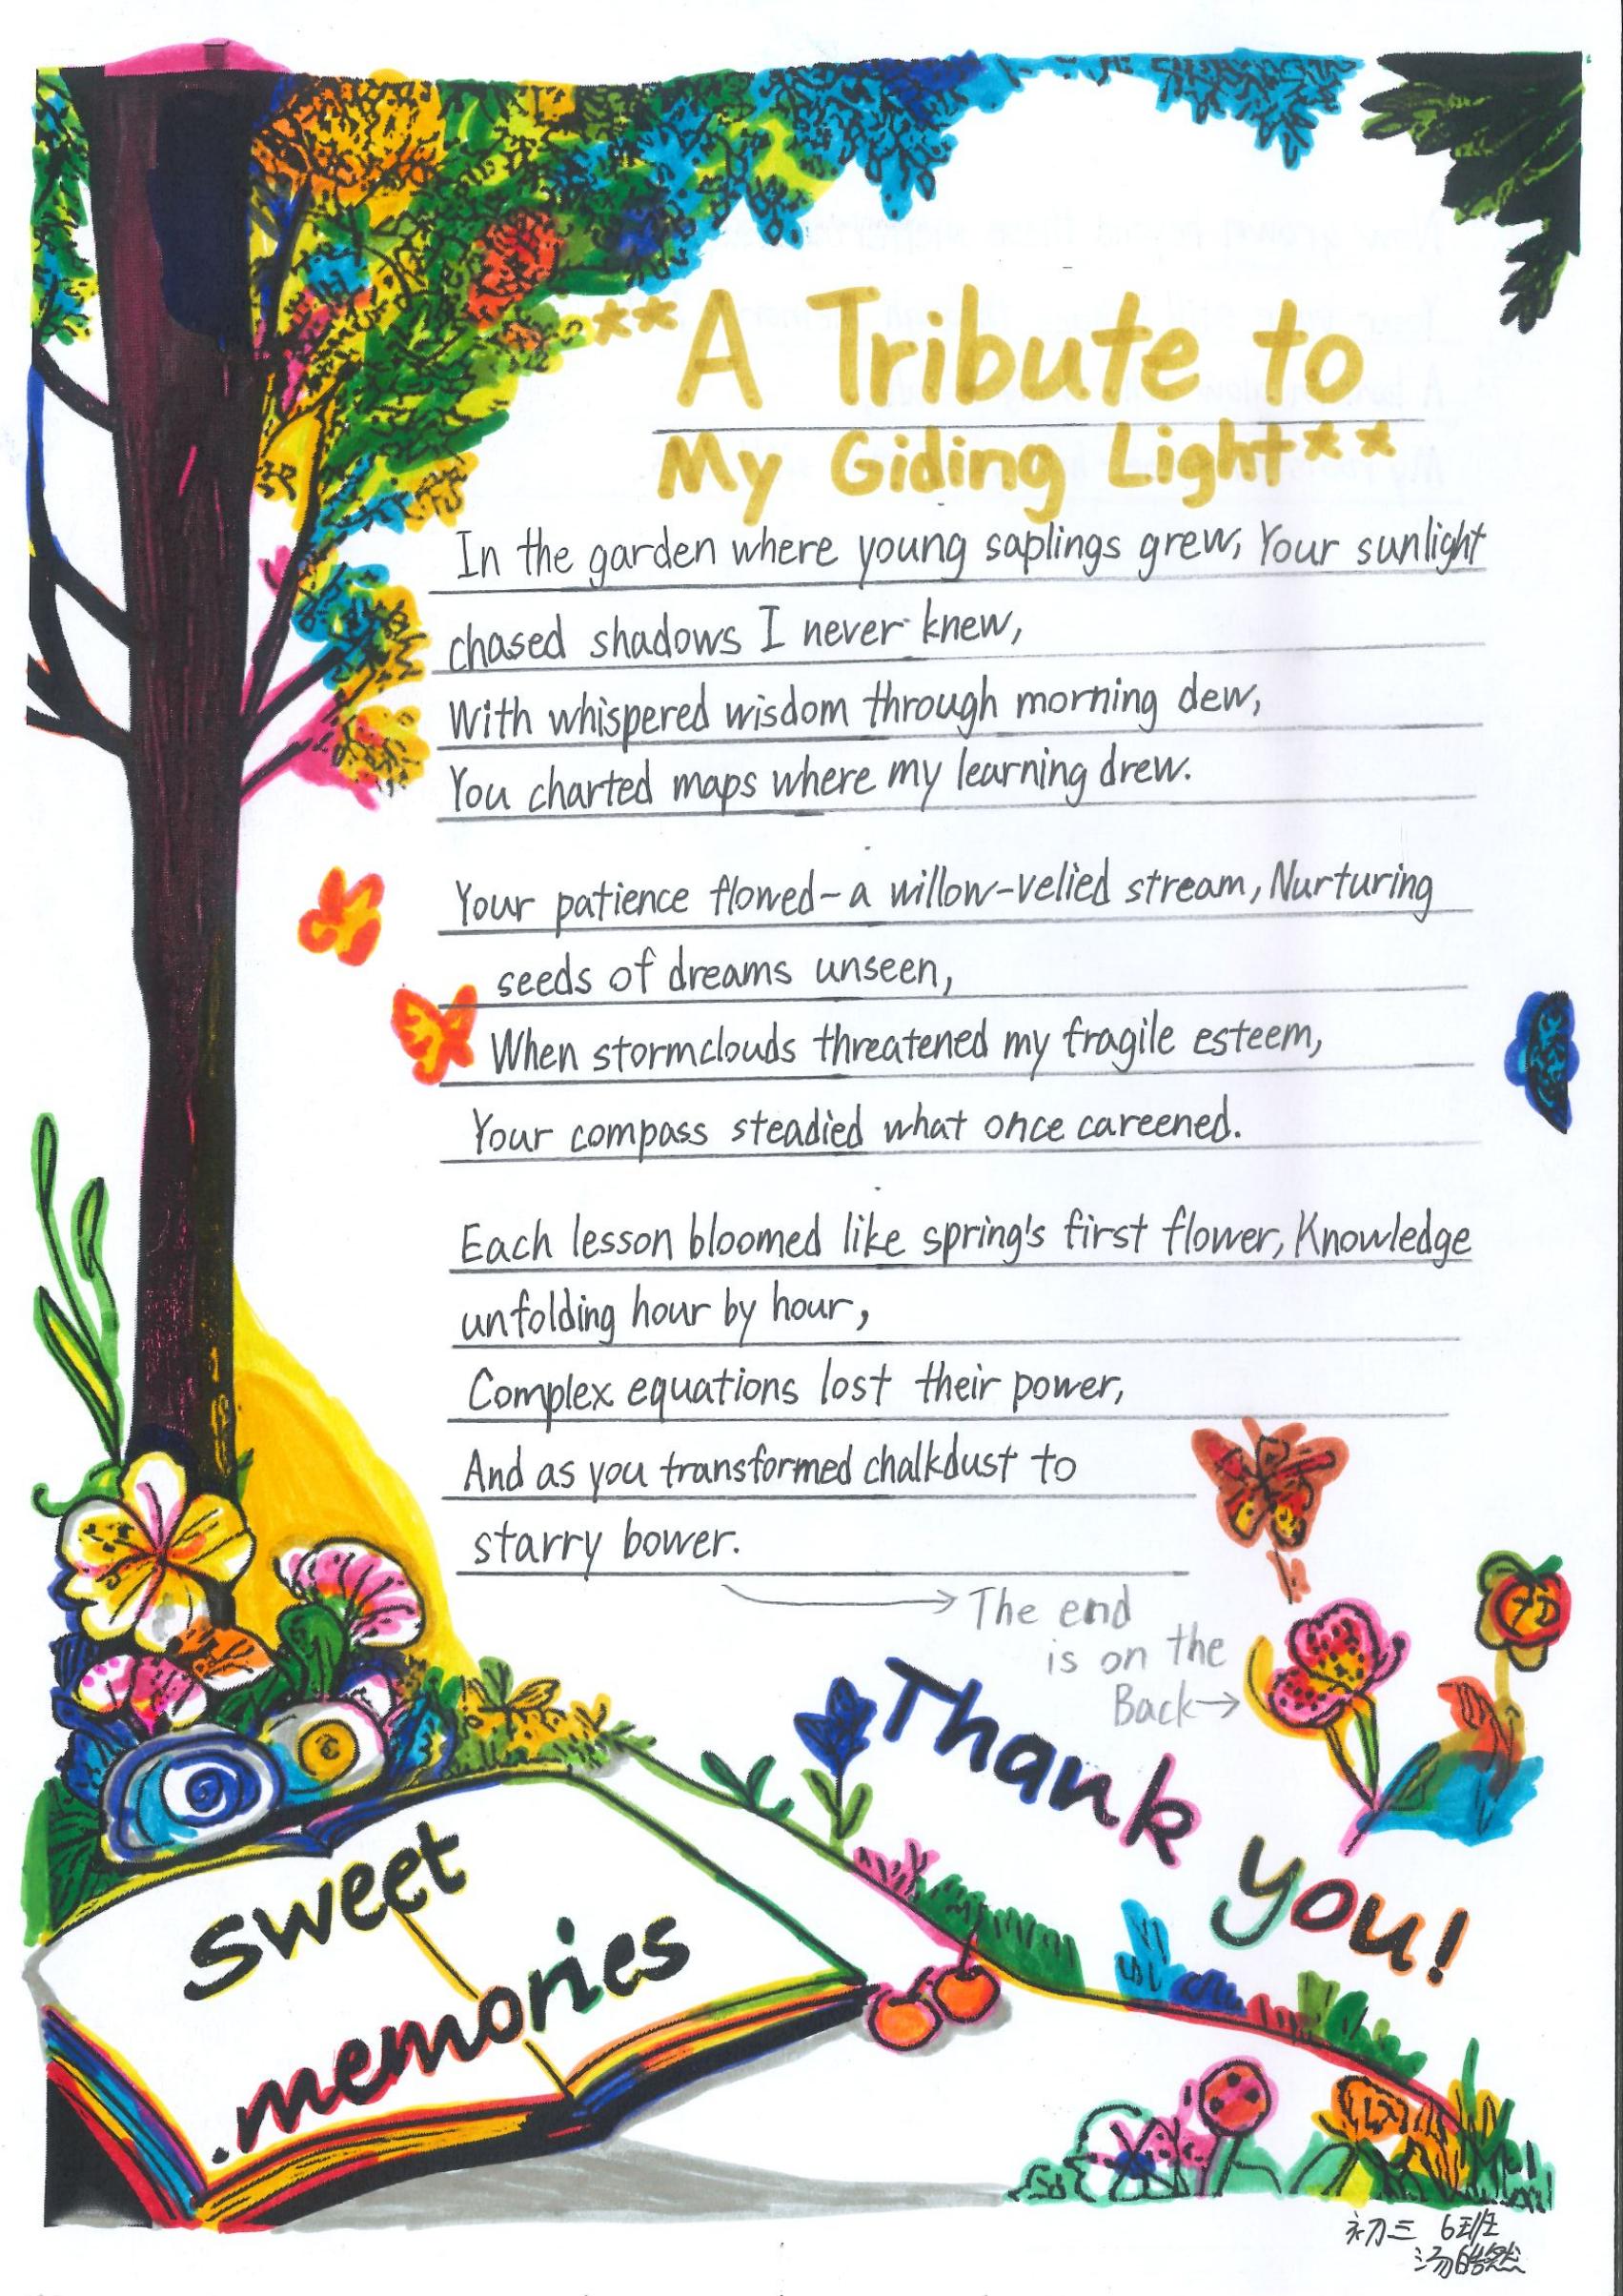 **A Tribute to
My Giding Light**
In the garden where young saplings grew, Your sunlight
chased shadows I never knew,
With whispered wisdom through morning dew,
You charted maps where my learning drew.
Your patience flowed-a willow-velied stream, Nurturing
seeds of dreams unseen,
When stormclouds threatened my fragile esteem,
Your compass steadied what once careened.
Each lesson bloomed like spring's first flower, Knowledge
unfolding hour by hour,
Complex equations lost their power,
And as you transformed chalkdust to
starry bower.
→ The end
is on the
Back→
Thank
you!
sweet
.memories
初三 6班
汤皓然